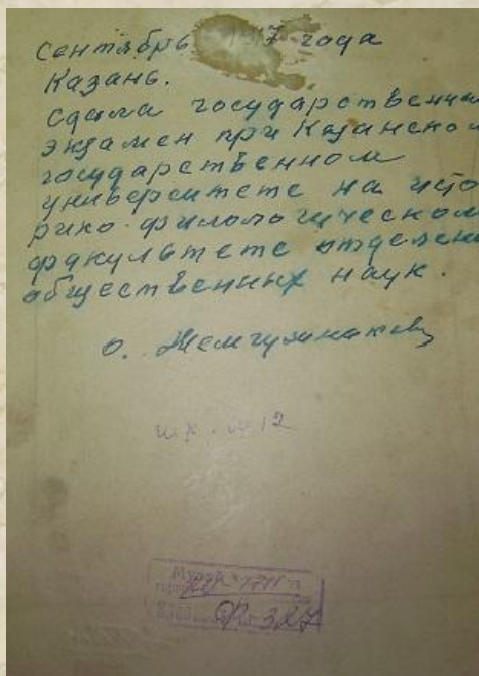 сентябрь 1917 года
Казань.
Сдала государственный
экзамен при Казанском
государственном
университете на исто
рико-филологическом
факультете отделени
общественных наук.
О. Жемчужникова
Ф-327